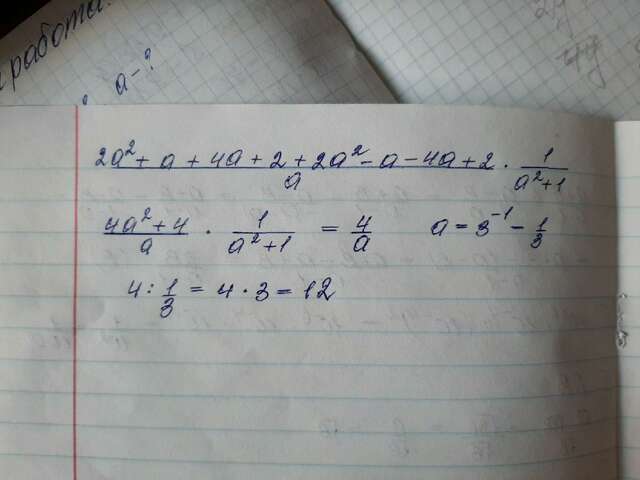 работа.
а - ?
2a² + a + 4a + 2 + 2a² - a - 4a + 2 / a · 1 / a²+1
4a² + 4 / a · 1 / a²+1 = 4 / a a = 3⁻¹ - 1/3
4 : 1/3 = 4 · 3 = 12